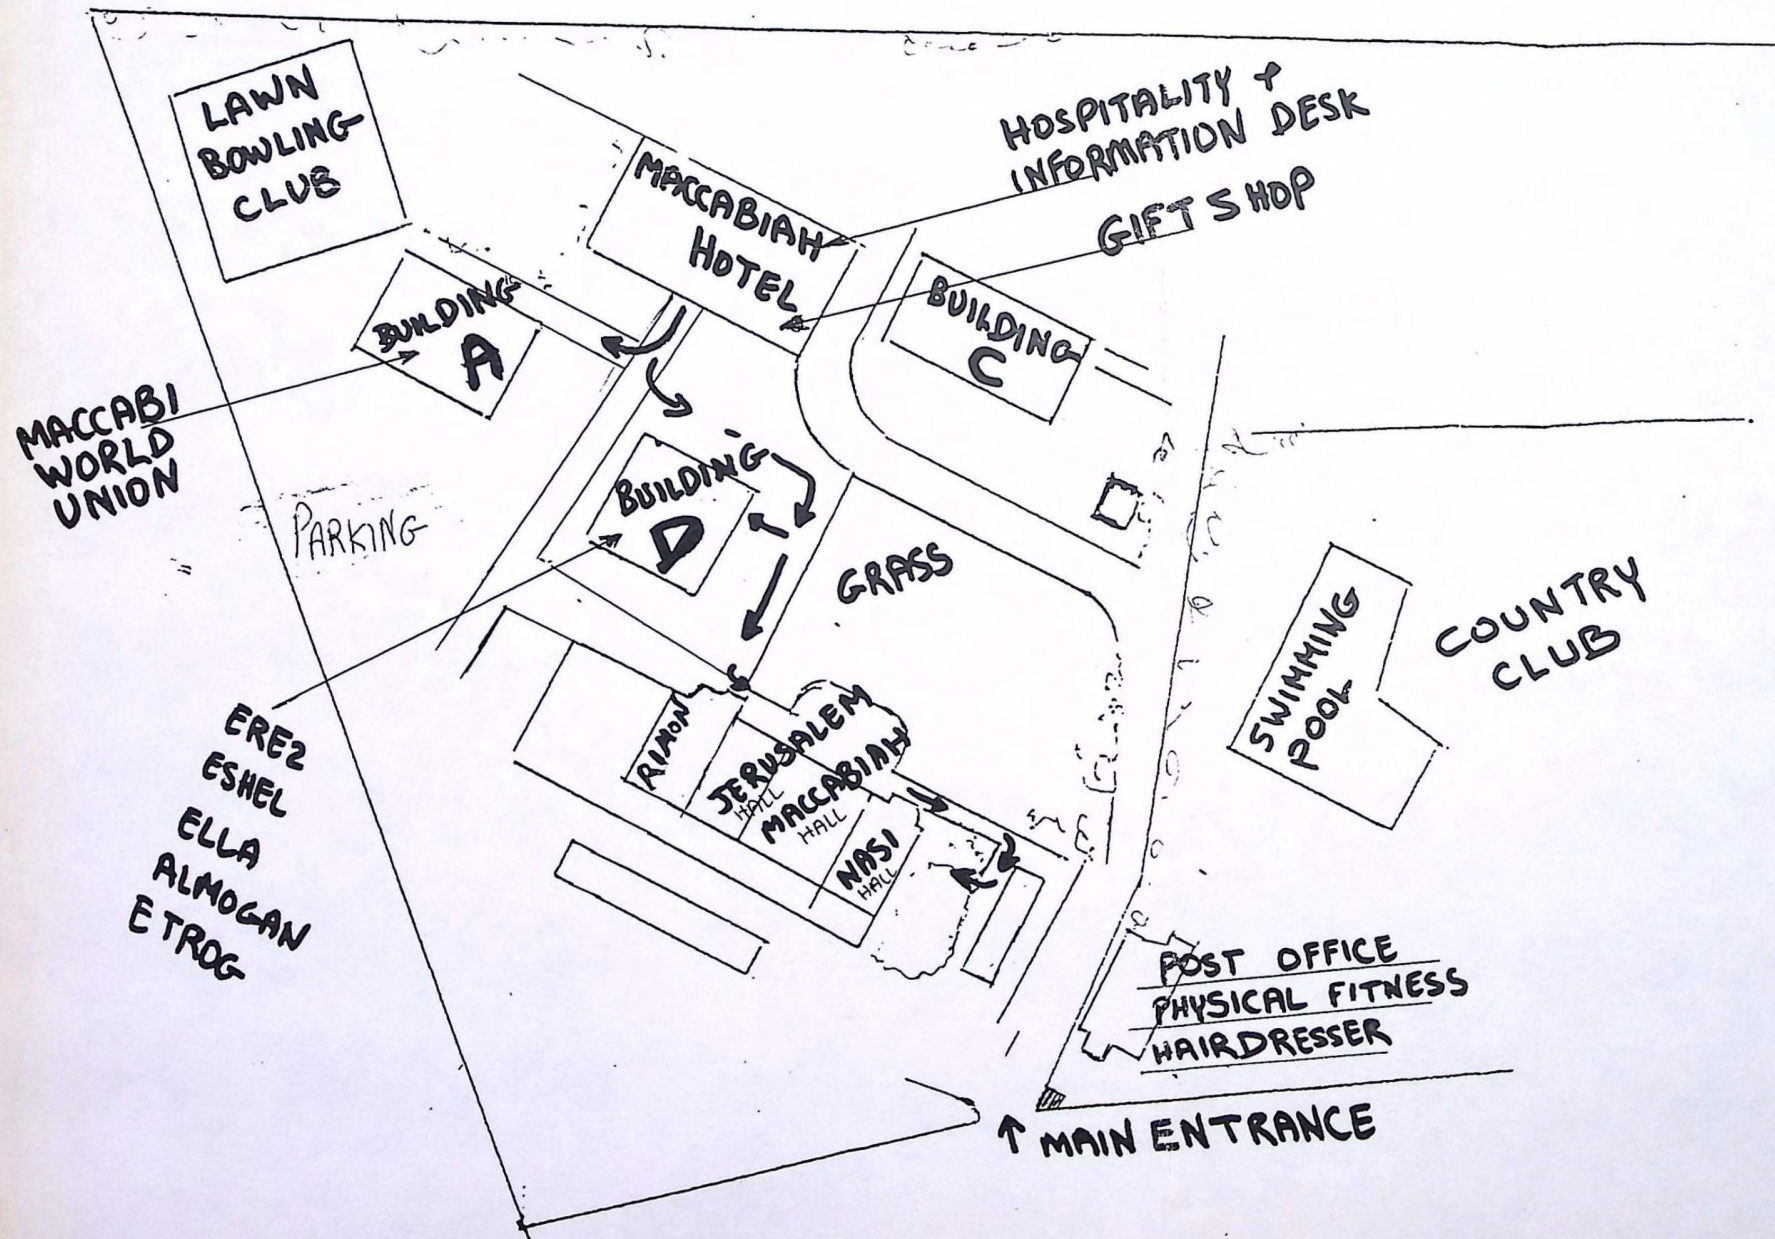 LAWN
BOWLING
CLUB
MACCABIAH
HOTEL
HOSPITALITY +
INFORMATION DESK
GIFT SHOP
BUILDING
A
BUILDING
C
MACCABI
WORLD
UNION
PARKING
BUILDING
D
GRASS
SWIMMING
POOL
COUNTRY
CLUB
EREZ
ESHEL
ELLA
ALMOGAN
ETROG
RIMON
JERUSALEM
HALL
MACCABIAH
HALL
NASI
HALL
POST OFFICE
PHYSICAL FITNESS
HAIRDRESSER
↑ MAIN ENTRANCE